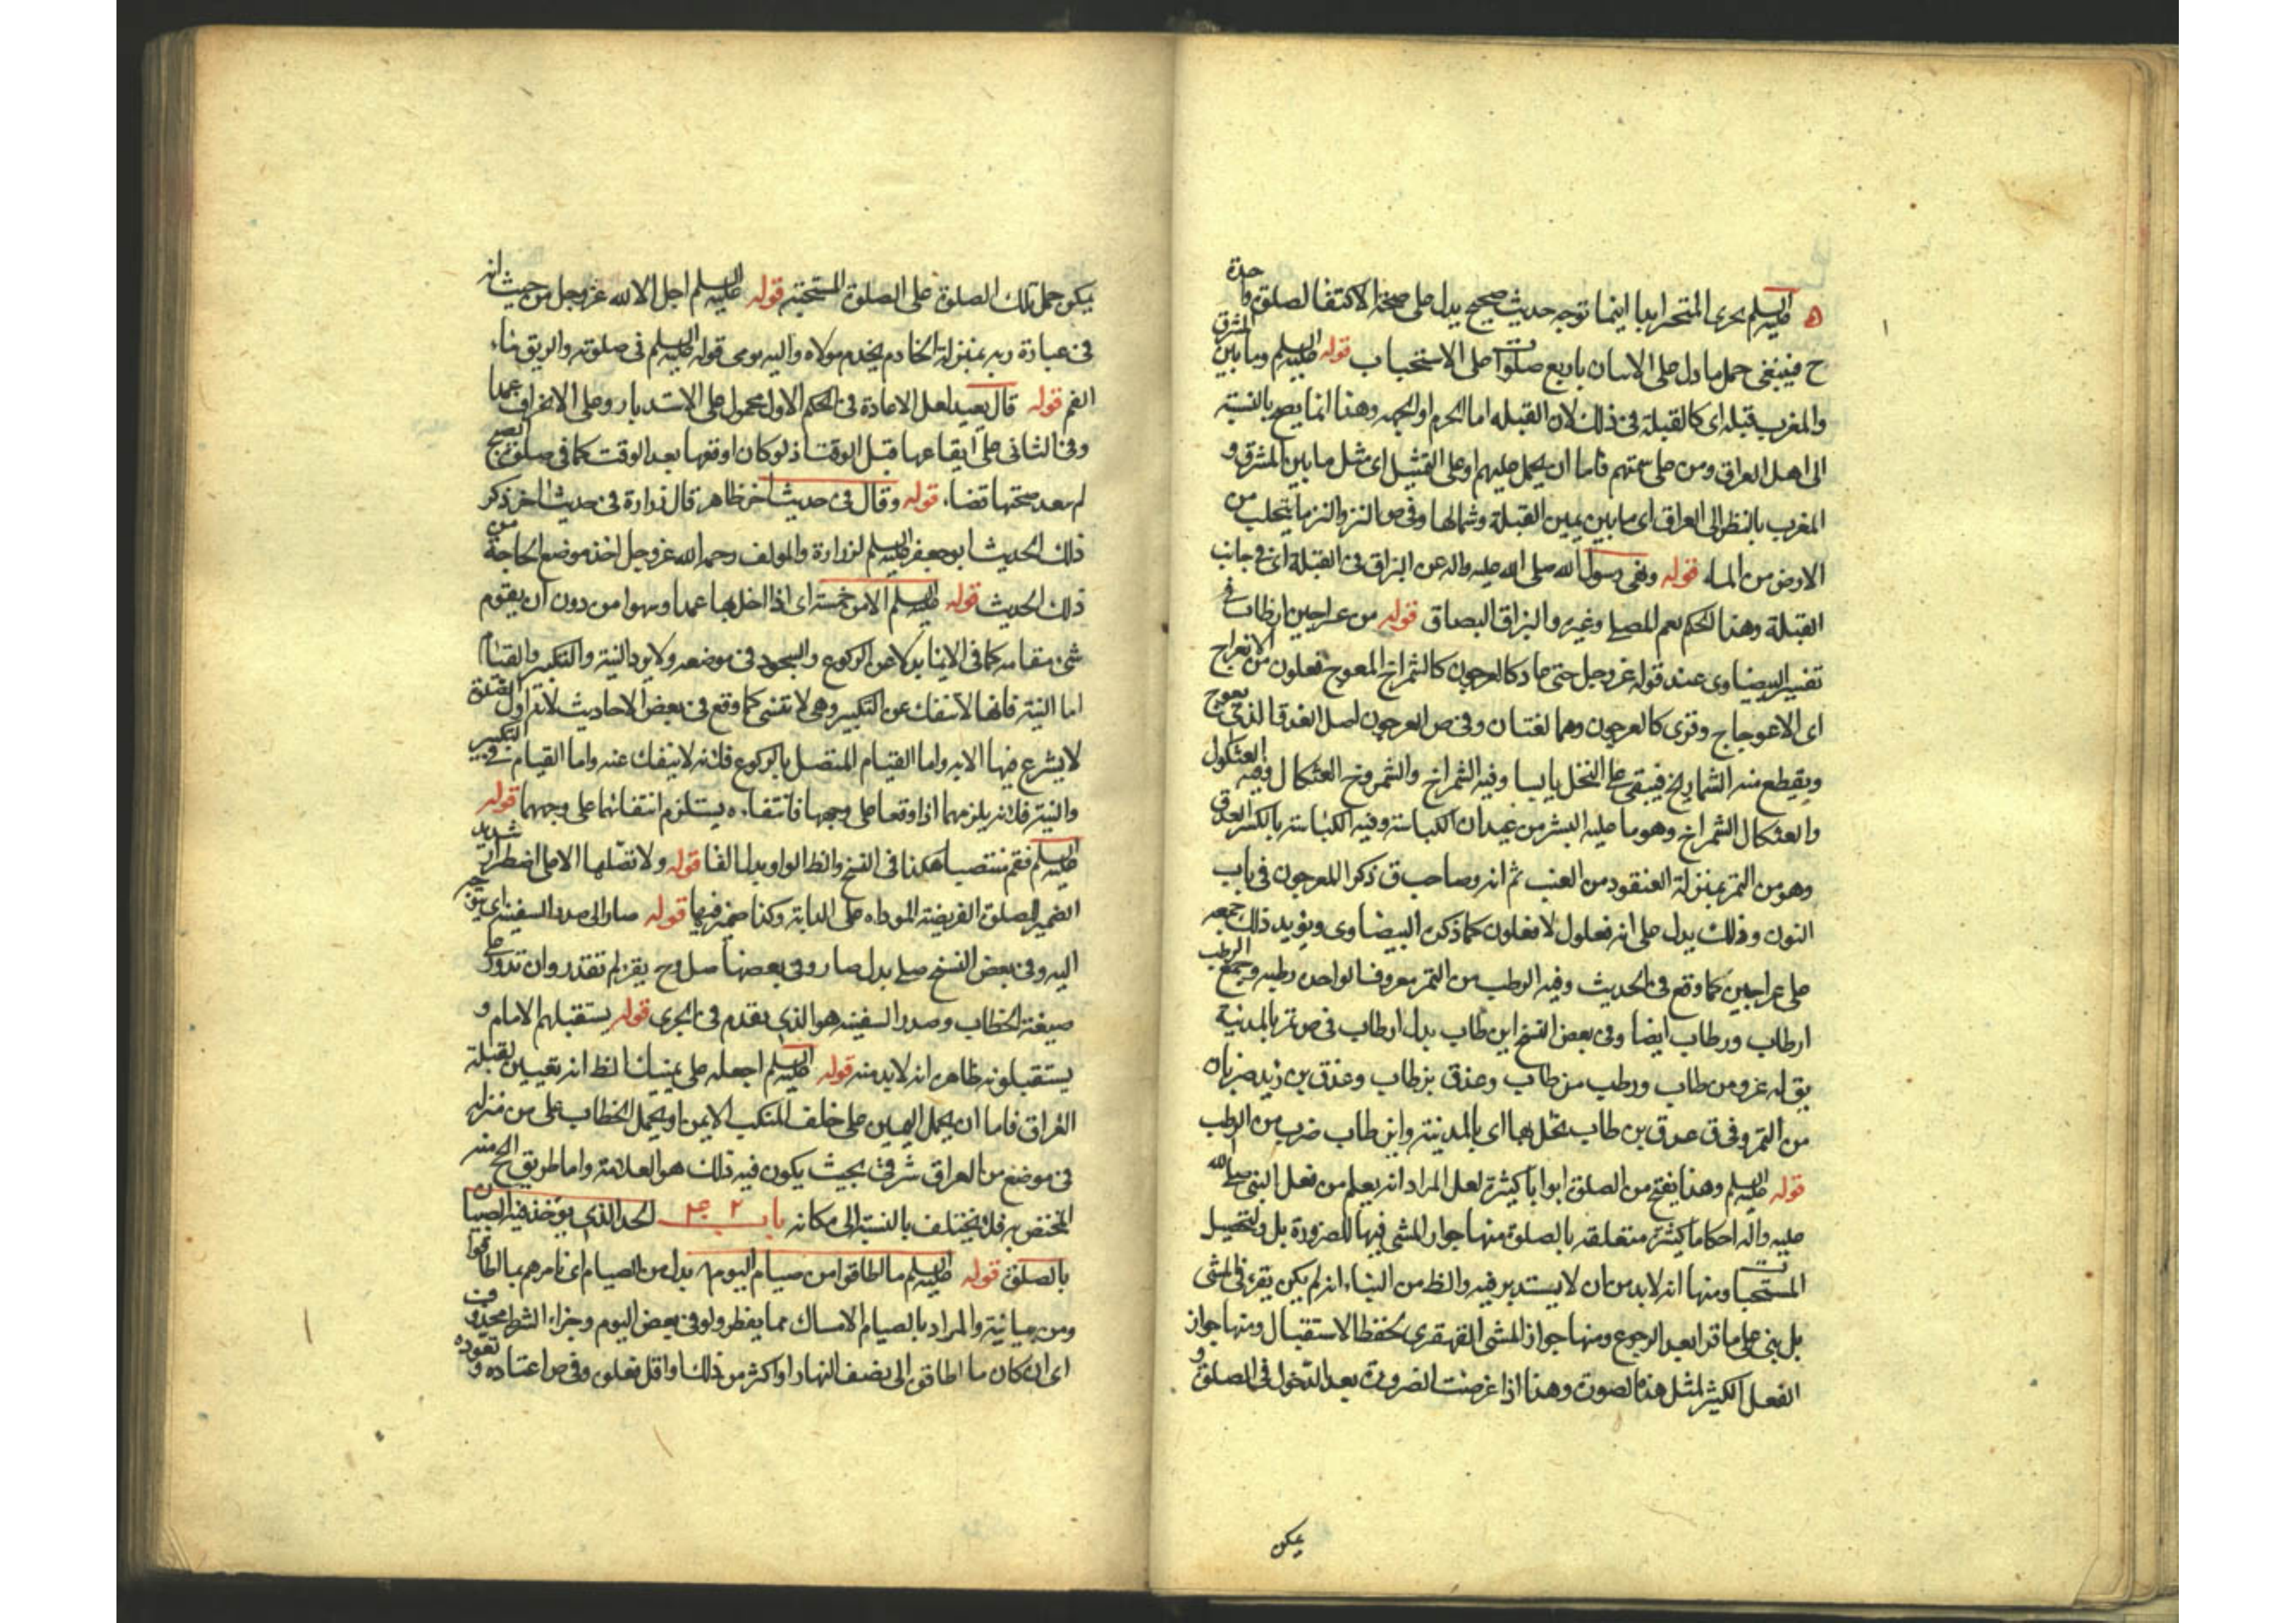 عليه السلم يجزى المتحير ابدا اينما توجه حديث صحيح يدل على صحة الاكتفا لصلوة واحدة
ح فينبغى حمل ما دل على الاتيان باربع صلوات على الاستحباب قوله عليه السلم وما بين المشرق
والمغرب قبله اى كالقبلة فى ذلك لان القبله اما الحرم او الجهه وهذا انما يصح بالنسبة
الى اهل العراق ومن على سمتهم فاما ان يحمل عليهم او على التمثيل اى مثل ما بين المشرق و
المغرب بالنظر الى العراق اى ما بين يمين القبلة وشمالها وفى ص النز والنز ما يتحلب من
الارض من الماء قوله ونهى رسول الله صلى الله عليه واله عن البزاق فى القبلة اى فى جانب
القبلة وهذا الحكم يعم المصلى وغيره والبزاق البصاق قوله من عراجين ارطاب فى
تفسير البيضاوى عند قوله عز وجل حتى عاد كالعرجون كالشمراخ المعوج فعلون من الانعراج
اى الاعوجاج وقرى كالعرجون وهما لغتان وفى ص العرجون اصل العذق الذى يعوج
ويقطع منه الشماريخ فيبقى على النخل يابسا وفيه الشمراخ والشمروخ العثكال وفيه العثكول
والعثكال الشمراخ وهو ما عليه البسر من عيدان الكباسة وفيه الكباسة بالكسر العذق
وهو من التمر بمنزلة العنقود من العنب ثم انه وصاحب ق ذكرا العرجون فى باب
النون وذلك يدل على انه فعلول لا فعلون كما ذكره البيضاوى ويؤيد ذلك جمعه
على عراجين كما وقع فى الحديث وفيه الرطب من التمر معروف الواحدة رطبه وجمع الرطب
ارطاب ورطاب ايضا وفى بعض النسخ ابن طاب بدل ارطاب فى ص تمر بالمدينة
يق له عذق بن طاب ورطب بن طاب وعذق بن طاب وعذق بن زيد ضربان
من التمر وفى ق عذق بن طاب نخل بها اى بالمدينة وابن طاب ضرب من الرطب
قوله عليه السلم وهذا يفتح من الصلوة ابوابا كثيرة لعل المراد انه يعلم من فعل النبى صلى الله
عليه واله احكاما كثيرة متعلقه بالصلوة منها جواز المشى فيها للضرورة بل لتحصيل
المستحبات ومنها انه لابد من ان لا يستدبر فيه والظ من البناء انه لم يكن يقرء فى المشى
بل بنى على ما قرا بعد الرجوع ومنها جواز المشى القهقرى لحفظ الاستقبال ومنها جواز
الفعل الكثير لمثل هذه الصورة وهذا اذا عرضت الضرورة بعد الدخول فى الصلوة و
يمكن
يمكن حمل تلك الصلوة على الصلوة المستحبة قوله عليه السلم اجل الا لله عز وجل من حيث انه
فى عبادة ربه بمنزلة الخادم يخدم مولاه واليه يومى قوله عليه السلم فى صلوته والريق ماء
الفم قوله قال يعيد لعل الاعادة فى الحكم الاول محمول على الاستدبار وعلى الانحراف عمدا
وفى الثانى على ايقاعها قبل الوقت اذ لو كان اوقعها بعد الوقت كما فى صلوة الصبح
لم بعد صحتها قضاء قوله وقال فى حديث اخر ظاهره قال زرارة فى حديث اخر ذكر
ذلك الحديث ابو جعفر عليه السلم لزرارة والمولف رحمه الله عز وجل اخذ موضع الحاجة من
ذلك الحديث قوله عليه السلم الا من خمسة اى اذا اخل بها عمدا وسهوا من دون ان يقوم
شئ مقامه كما فى الايما بدلا عن الركوع والسجود فى موضعه ولا يرد النية والتكبير والقيام
اما النية فانها لا تنفك عن التكبير وهى لا تنسى كما وقع فى بعض الاحاديث لانه اول الصلوة
لا يشرع فيها الا به واما القيام المتصل بالركوع فلانه لا ينفك عنه واما القيام فى التكبير
والنية فلانه يلزمهما اذا وقعا على وجهها فانتفاءه يستلزم انتفائهما على وجههما قوله
عليه السلم فقم منتصبا هكذا فى النسخ والظ الواو بدل الفا قوله ولا تصلها الا على اضطرار شديد
الضمير للصلوة الفريضة الموداه على الدابة وكذا ضمير فيها قوله صار الى صدر السفينة اى
اليه وفى بعض النسخ صلى بدل صار وفى بعضها صل وح يقرء لم تقدر وان تدور على
صيغة الخطاب وصدر السفينه هو الذى يقدم فى الجرى قوله يستقبلهم الامام و
يستقبلونه ظاهره انه لابد منه قوله عليه السلم اجعله على يمينك الظ انه تعيين لقبلة
العراق فاما ان يحمل اليمين على خلف المنكب الايمن او يحمل الخطاب على من منزله
فى موضع من العراق شرقى بحيث يكون فيه ذلك هو العلامة واما طريق الحج منه
المختص به فلانه يختلف بالنسبة الى مكانه باب الحد الذى يؤخذ فيه الصبيان
بالصلوة قوله عليه السلم ما اطاقوا من صيام اليوم بدل من الصيام اى نامرهم بما اطاقوا
ومن بيانية والمراد بالصيام الامساك مما يفطر ولو فى بعض اليوم وجزاء الشرط محذوف
اى ان كان ما اطاقوه الى نصف النهار او اكثر من ذلك او اقل فعلوه وفى ص اعتاده و تعوده